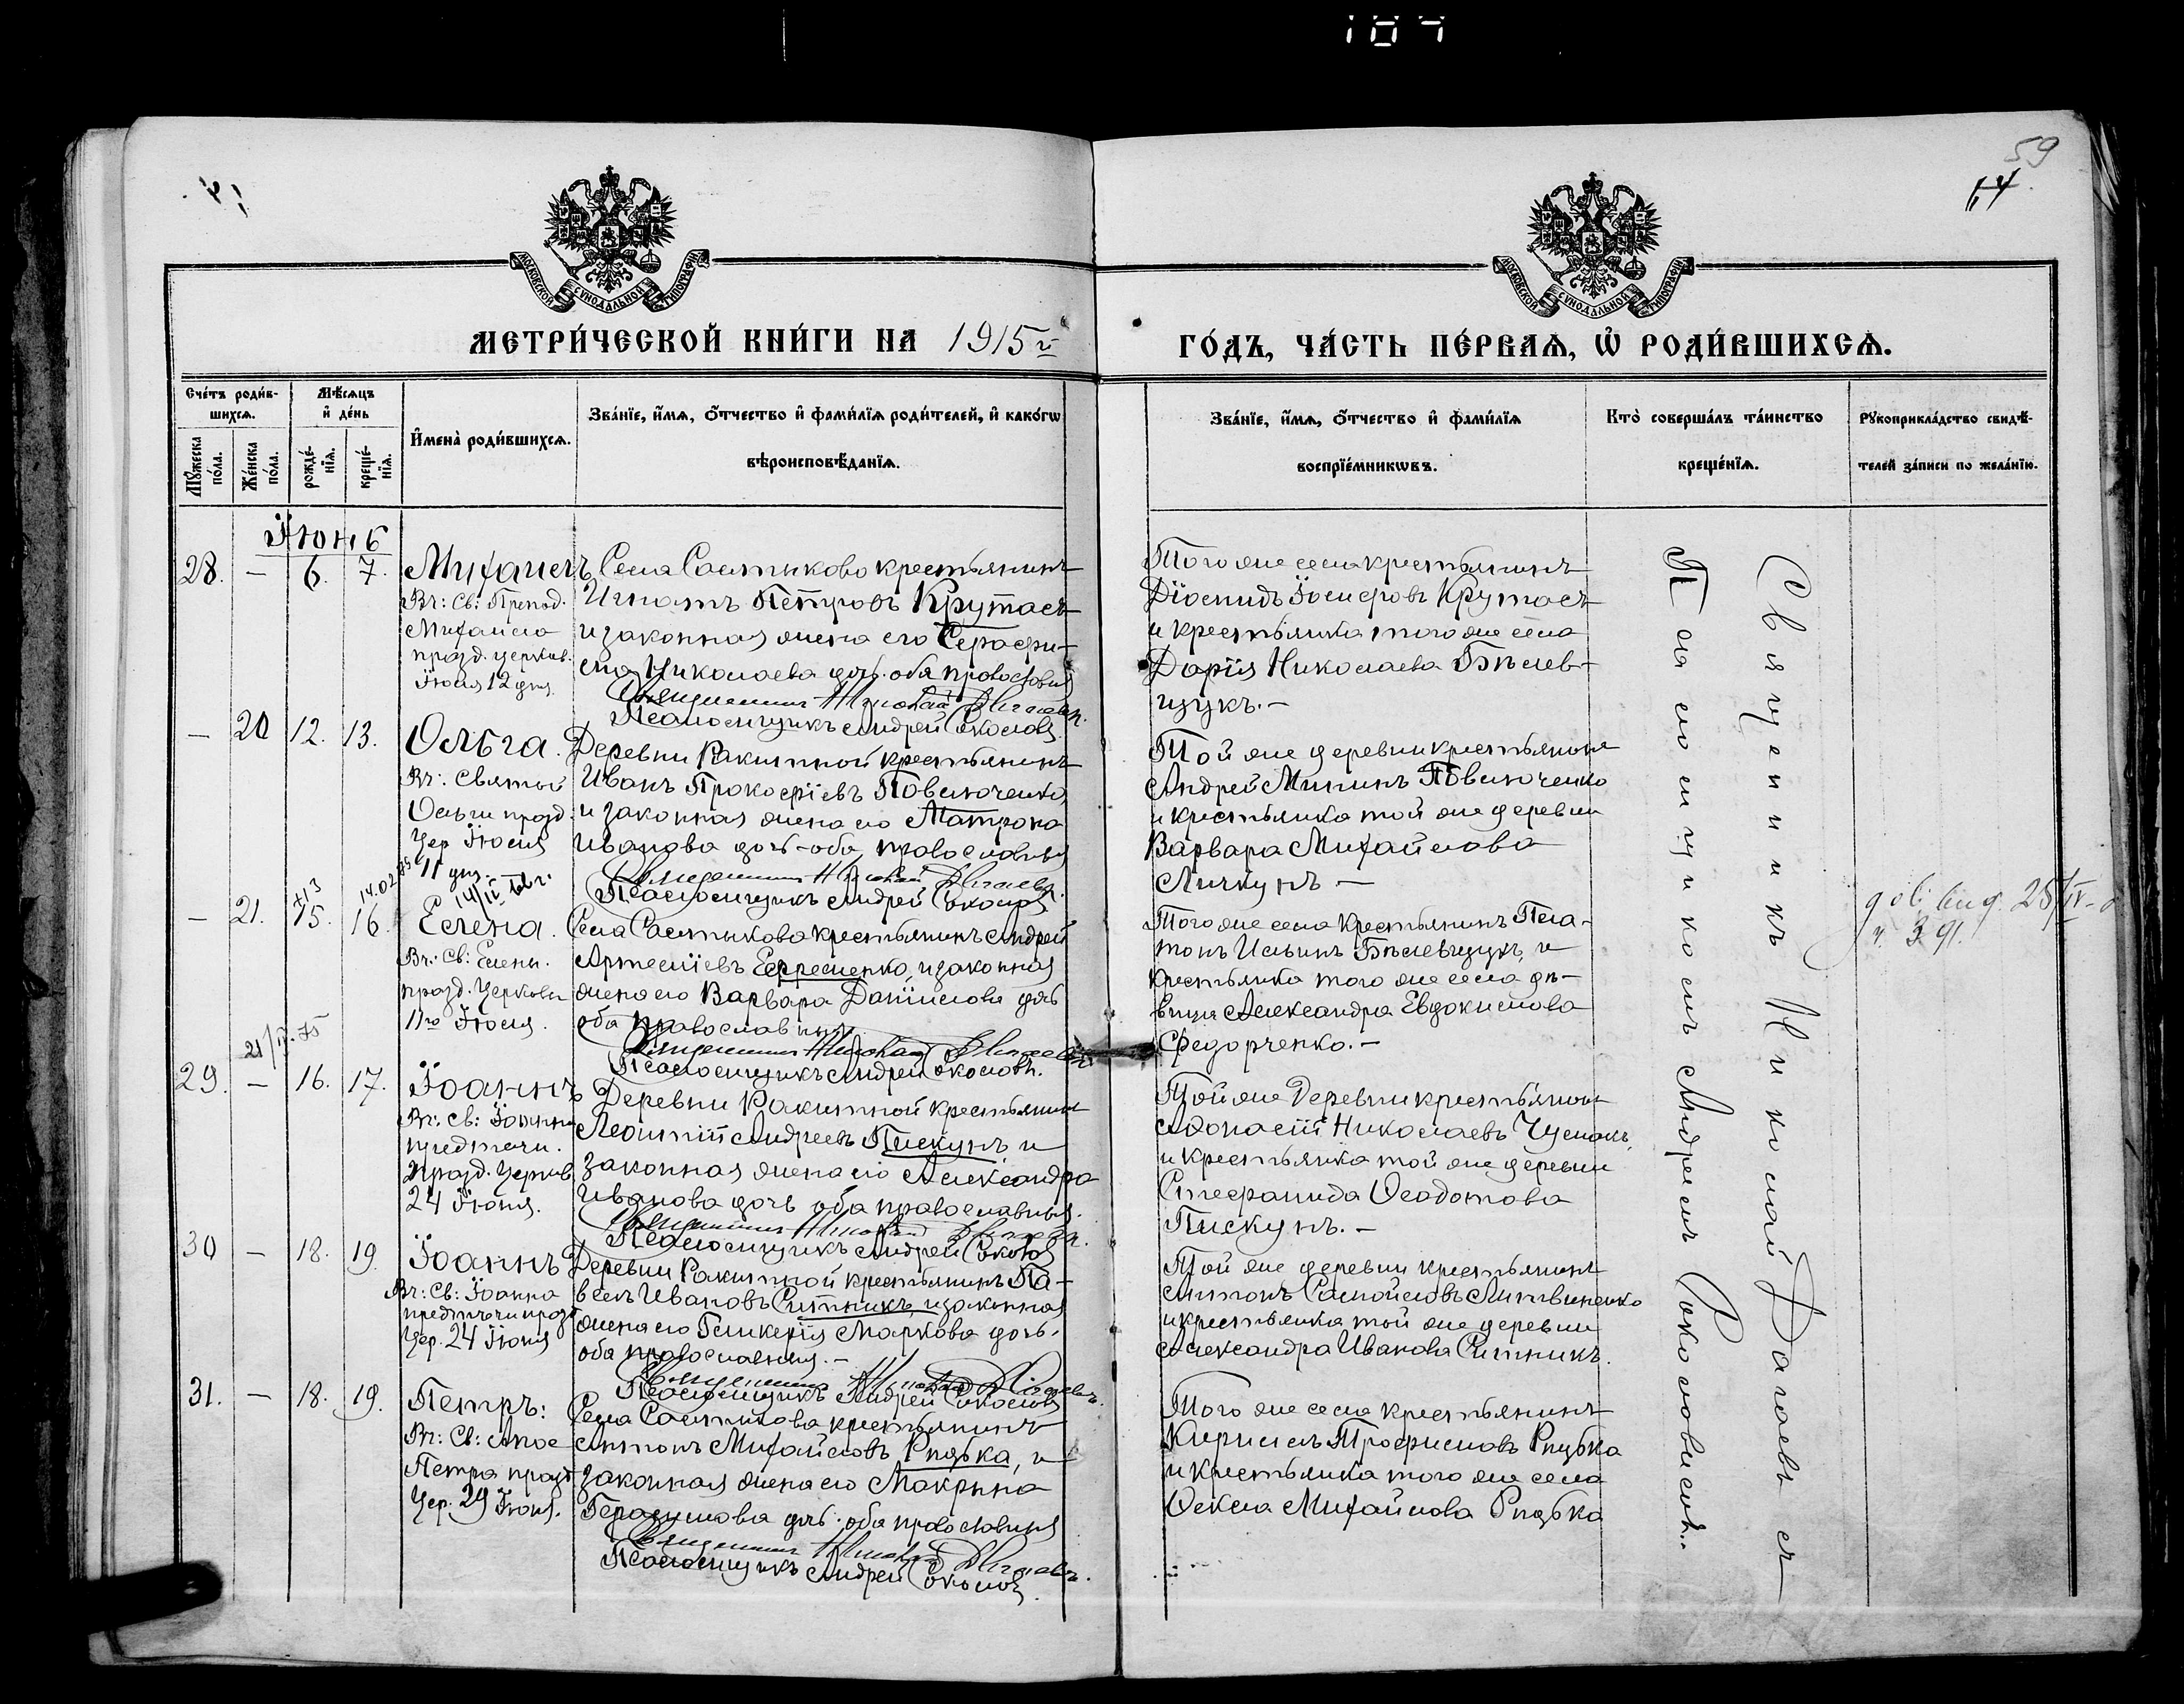 107
59
14
МОСКОВСКОЙ СУНОДАЛЬНОЙ ТИПОГРАФІИ
МОСКОВСКОЙ СУНОДАЛЬНОЙ ТИПОГРАФІИ
МЕТРИ́ЧЕСКОЙ КНИ́ГИ НА 1915 г.
ГО́ДЪ, ЧА́СТЬ ПЕ́РВАѦ, Ѡ҆ РОДИ́ВШИХСѦ.
Сче́тъ роди́в-
шихсѧ.
Мѣ́сѧцъ
и҆ де́нь
Мꙋ́жеска по́ла.
Же́нска по́ла.
рожде́-нїѧ.
креще́-нїѧ.
И҆мена̀ роди́вшихсѧ.
Зва́нїе, и҆́мѧ, ѻ҆́тчество и҆ фами́лїѧ роди́телей, и҆ како́гѡ
вѣроисповѣ́данїѧ.
Зва́нїе, и҆́мѧ, ѻ҆́тчество и҆ фами́лїѧ
воспрїе́мникѡвъ.
Кто̀ соверша́лъ та́инство
креще́нїѧ.
Рꙋкоприкла́дство свидѣ́-
телей за́писи по жела́нїю.
Їюнь
28. — 6. 7. Михаилъ
Въ: Св: Препод.
Михаила
празд. церков.
Їюля 12 дня.
Села Салтыково крестьянинъ
Игнатъ Петровъ Крутась
и законная жена его Серафи-
ма Николаева дочь. оба православныя
Священникъ Николай
Псаломщикъ Андрей Соколовъ
Того же села крестьянинъ
Діомидъ Їосифовъ Крутась
и крестьянка того же села
Дарія Николаева Бѣлев-
цукъ. —
— 20 12. 13. Ольга.
Въ: Святой
Ольги празд.
Цер Їюля
11 дня.
Деревни Ракитной крестьянинъ
Иванъ Прокофіевъ Повалюченко,
и законная жена его Матрона
Иванова дочь - оба православныя
Священникъ Николай
Псаломщикъ Андрей Соколовъ
Той же деревни крестьянинъ
Андрей Мининъ Повалюченко
и крестьянка той же деревни
Варвара Михайлова
Личкунъ —
14.02
— 21. 15. 16. Елена.
Въ: Св: Елены.
празд. Церковь
11го Їюля.
Села Салтыкова крестьянинъ Андрей
Артеміевъ Ефременко, и законная
жена его Варвара Даніилова дочь
оба православныя.
Священникъ Николай
Псаломщикъ Андрей Соколовъ.
Того же села крестьянинъ Пла-
тонъ Ильинъ Бѣлевцукъ, и
крестьянка того же села дѣ-
вица Александра Евдокимова
Федорченко. —
29. — 16. 17. Їоаннъ
Въ: Св: Їоанна
предтечи.
празд. Церков
24 Їюня.
Деревни Ракитной крестьянинъ
Леонтій Андреевъ Пискунъ и
законная жена его Александра
Иванова дочь оба православныя.
Священникъ Николай
Псаломщикъ Андрей Соколовъ
Той же Деревни крестьянинъ
Афонасій Николаевъ Чумакъ,
и крестьянка той же деревни
Стефанида Ѳеодотова
Пискунъ. —
30 — 18. 19. Їоаннъ
Въ: Св: Їоанна
предтечи празд
Цер. 24 Їюня
Деревни Ракитной крестьянинъ Па-
велъ Ивановъ Ситникъ, и законная
жена его Гликерія Маркова дочь.
оба православныя. —
Священникъ Николай
Псаломщикъ Андрей Соколовъ
Той же деревни крестьянинъ
Антонъ Самойловъ Литвиненко
и крестьянка той же деревни
Александра Иванова Ситникъ.
31. — 18. 19. Петръ:
Въ: Св: Апос
Петра празд
Цер. 29 Їюня.
Села Салтыкова крестьянинъ
Антонъ Михайловъ Рядька, и
законная жена его Макрина
Герасимова дочь. оба православныя
Священникъ Николай
Псаломщикъ Андрей Соколовъ.
Того же села крестьянинъ
Кириллъ Трофимовъ Рядька
и крестьянка того же села
Ѳекла Михайлова Рядька
Священникъ Николай съ
Псаломщикомъ Андреемъ Соколовымъ.